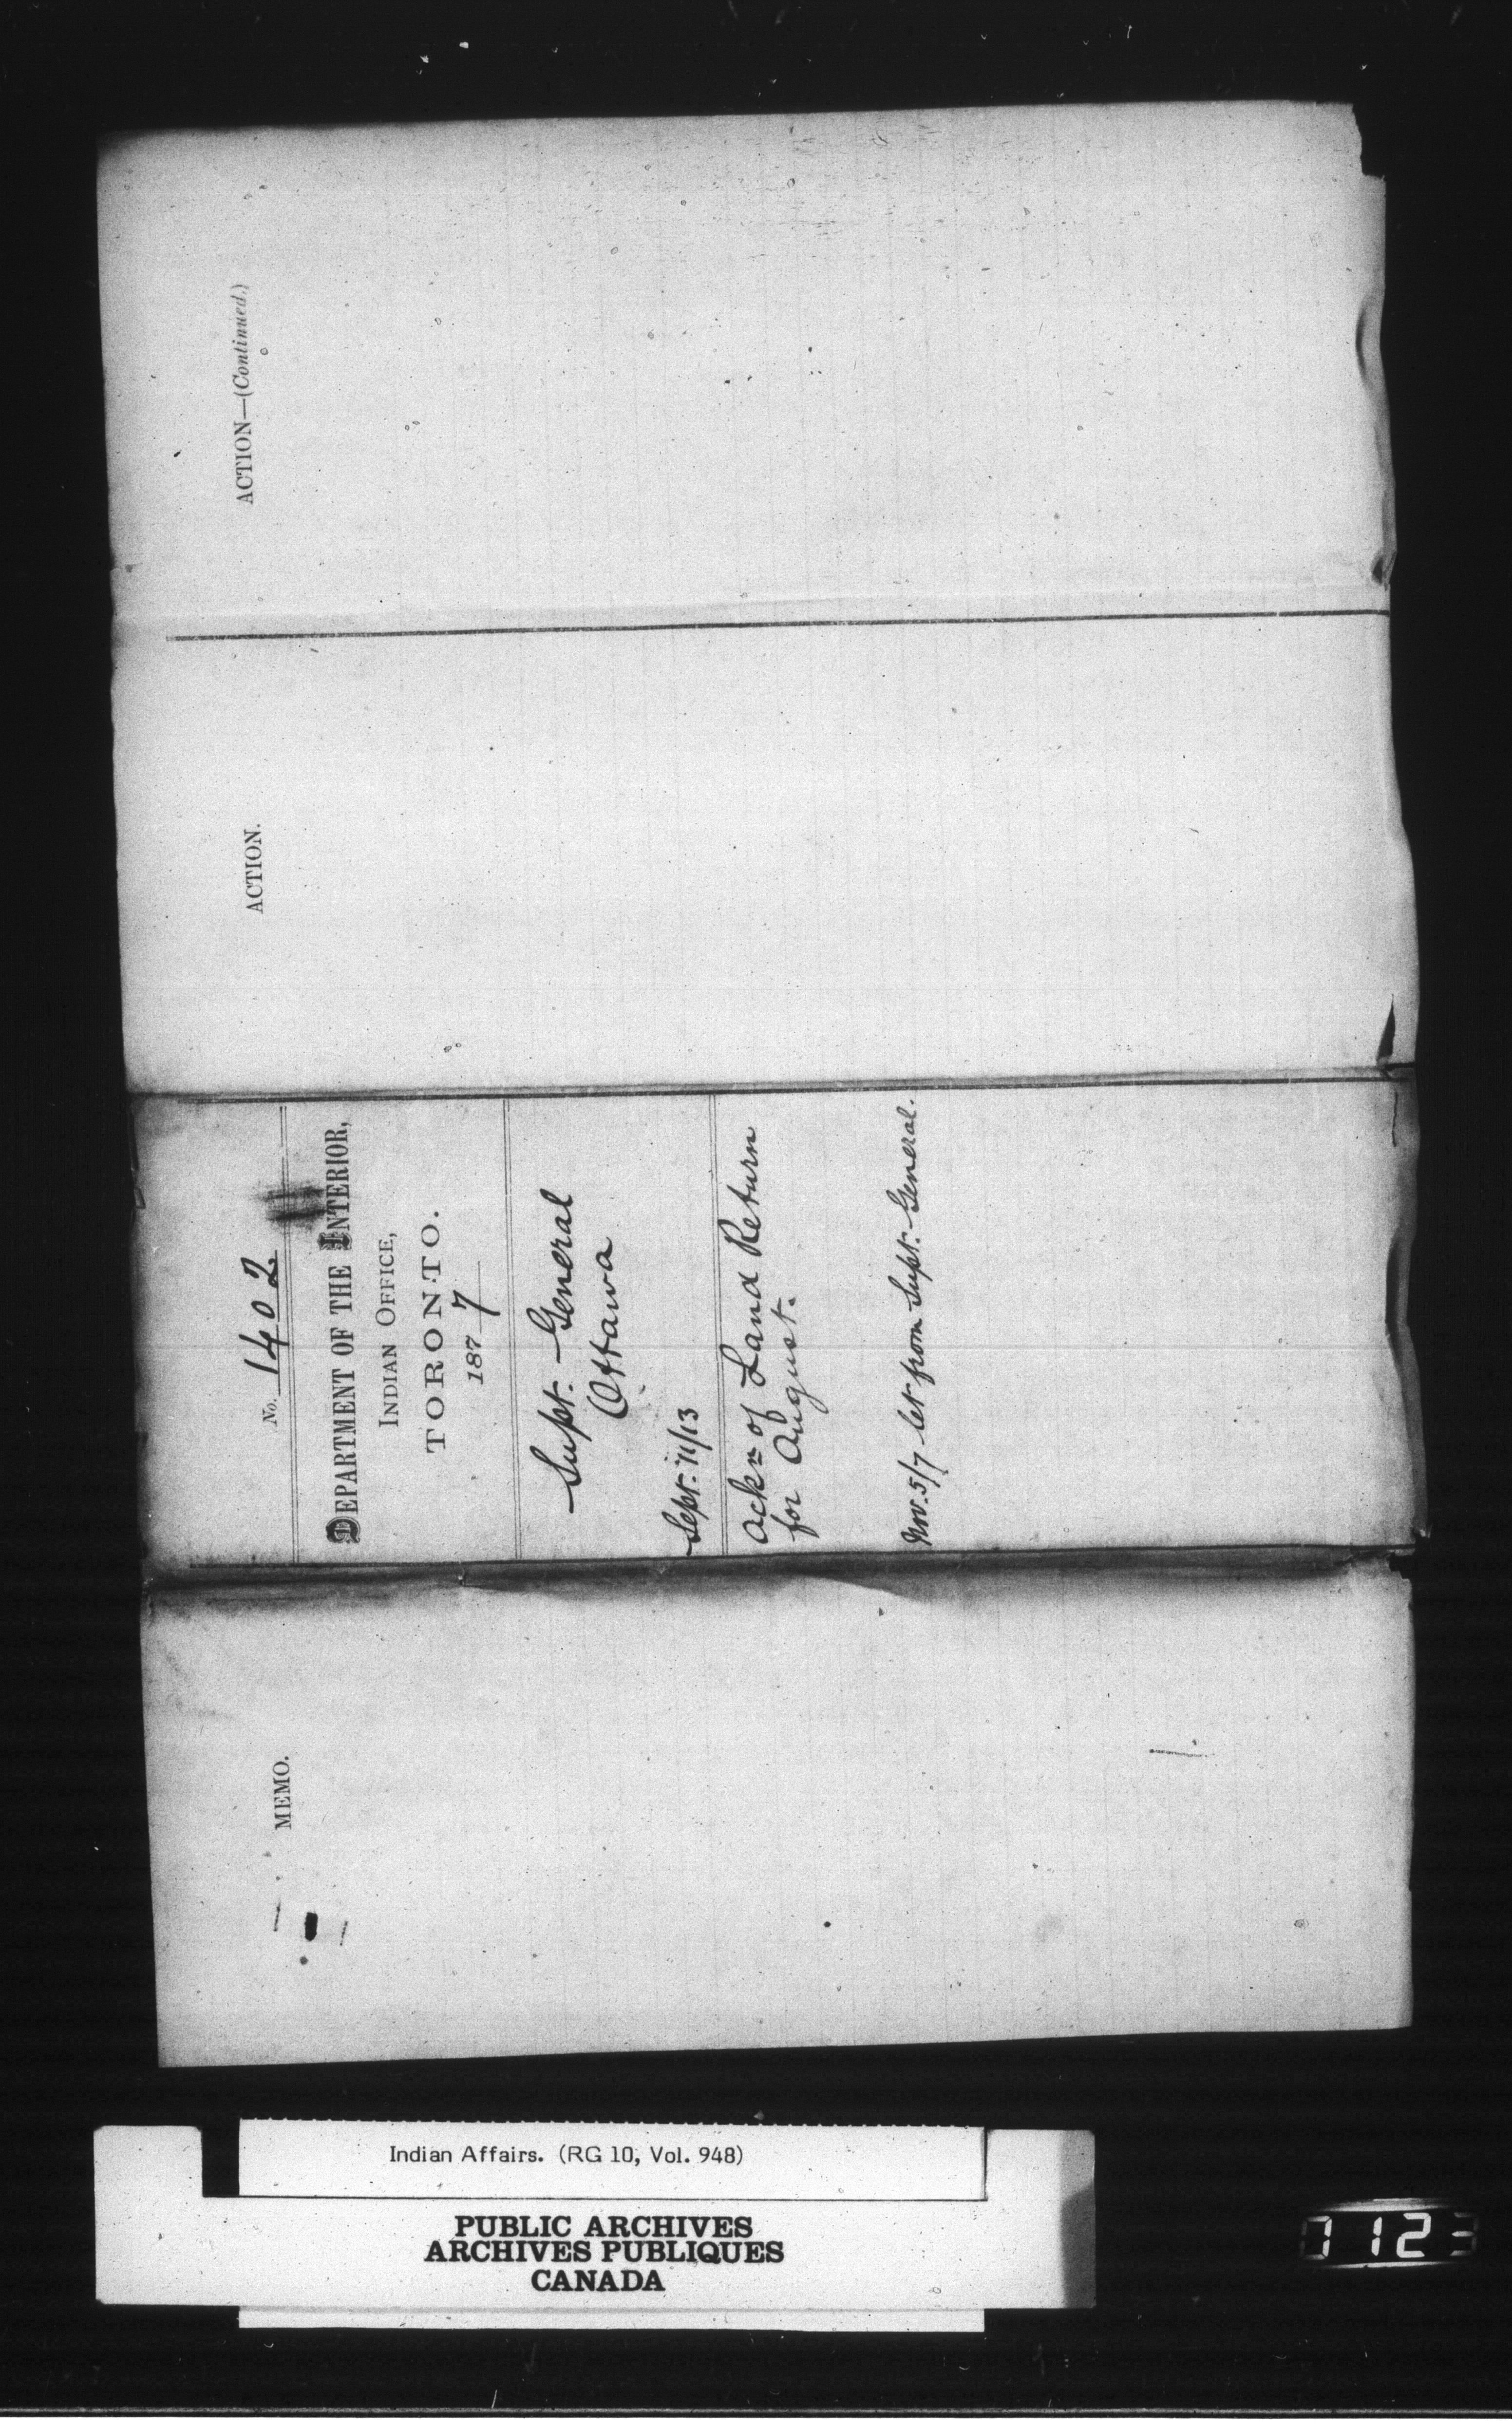 ACTION—(Continued.)
ACTION.
No. 1402
DEPARTMENT OF THE INTERIOR,
INDIAN OFFICE,
TORONTO.
1877
Supt. General
Ottawa
Sept. 11/13
Ackn of Land Return
for August.
Nov. 5/7 let from Supt. General.
MEMO.
Indian Affairs. (RG 10, Vol. 948)
PUBLIC ARCHIVES
ARCHIVES PUBLIQUES
CANADA